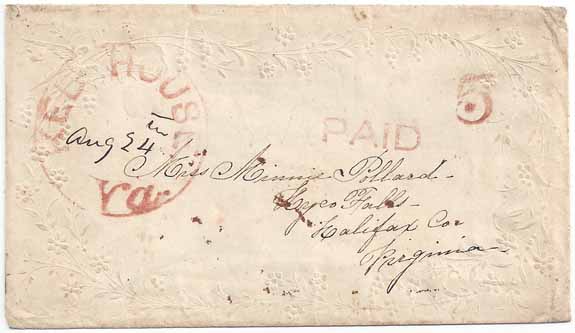 RED HOUSE
Va.
Aug 24th
PAID
5
Miss Minnie Pollard
Hyco Falls
Halifax Co.
Virginia